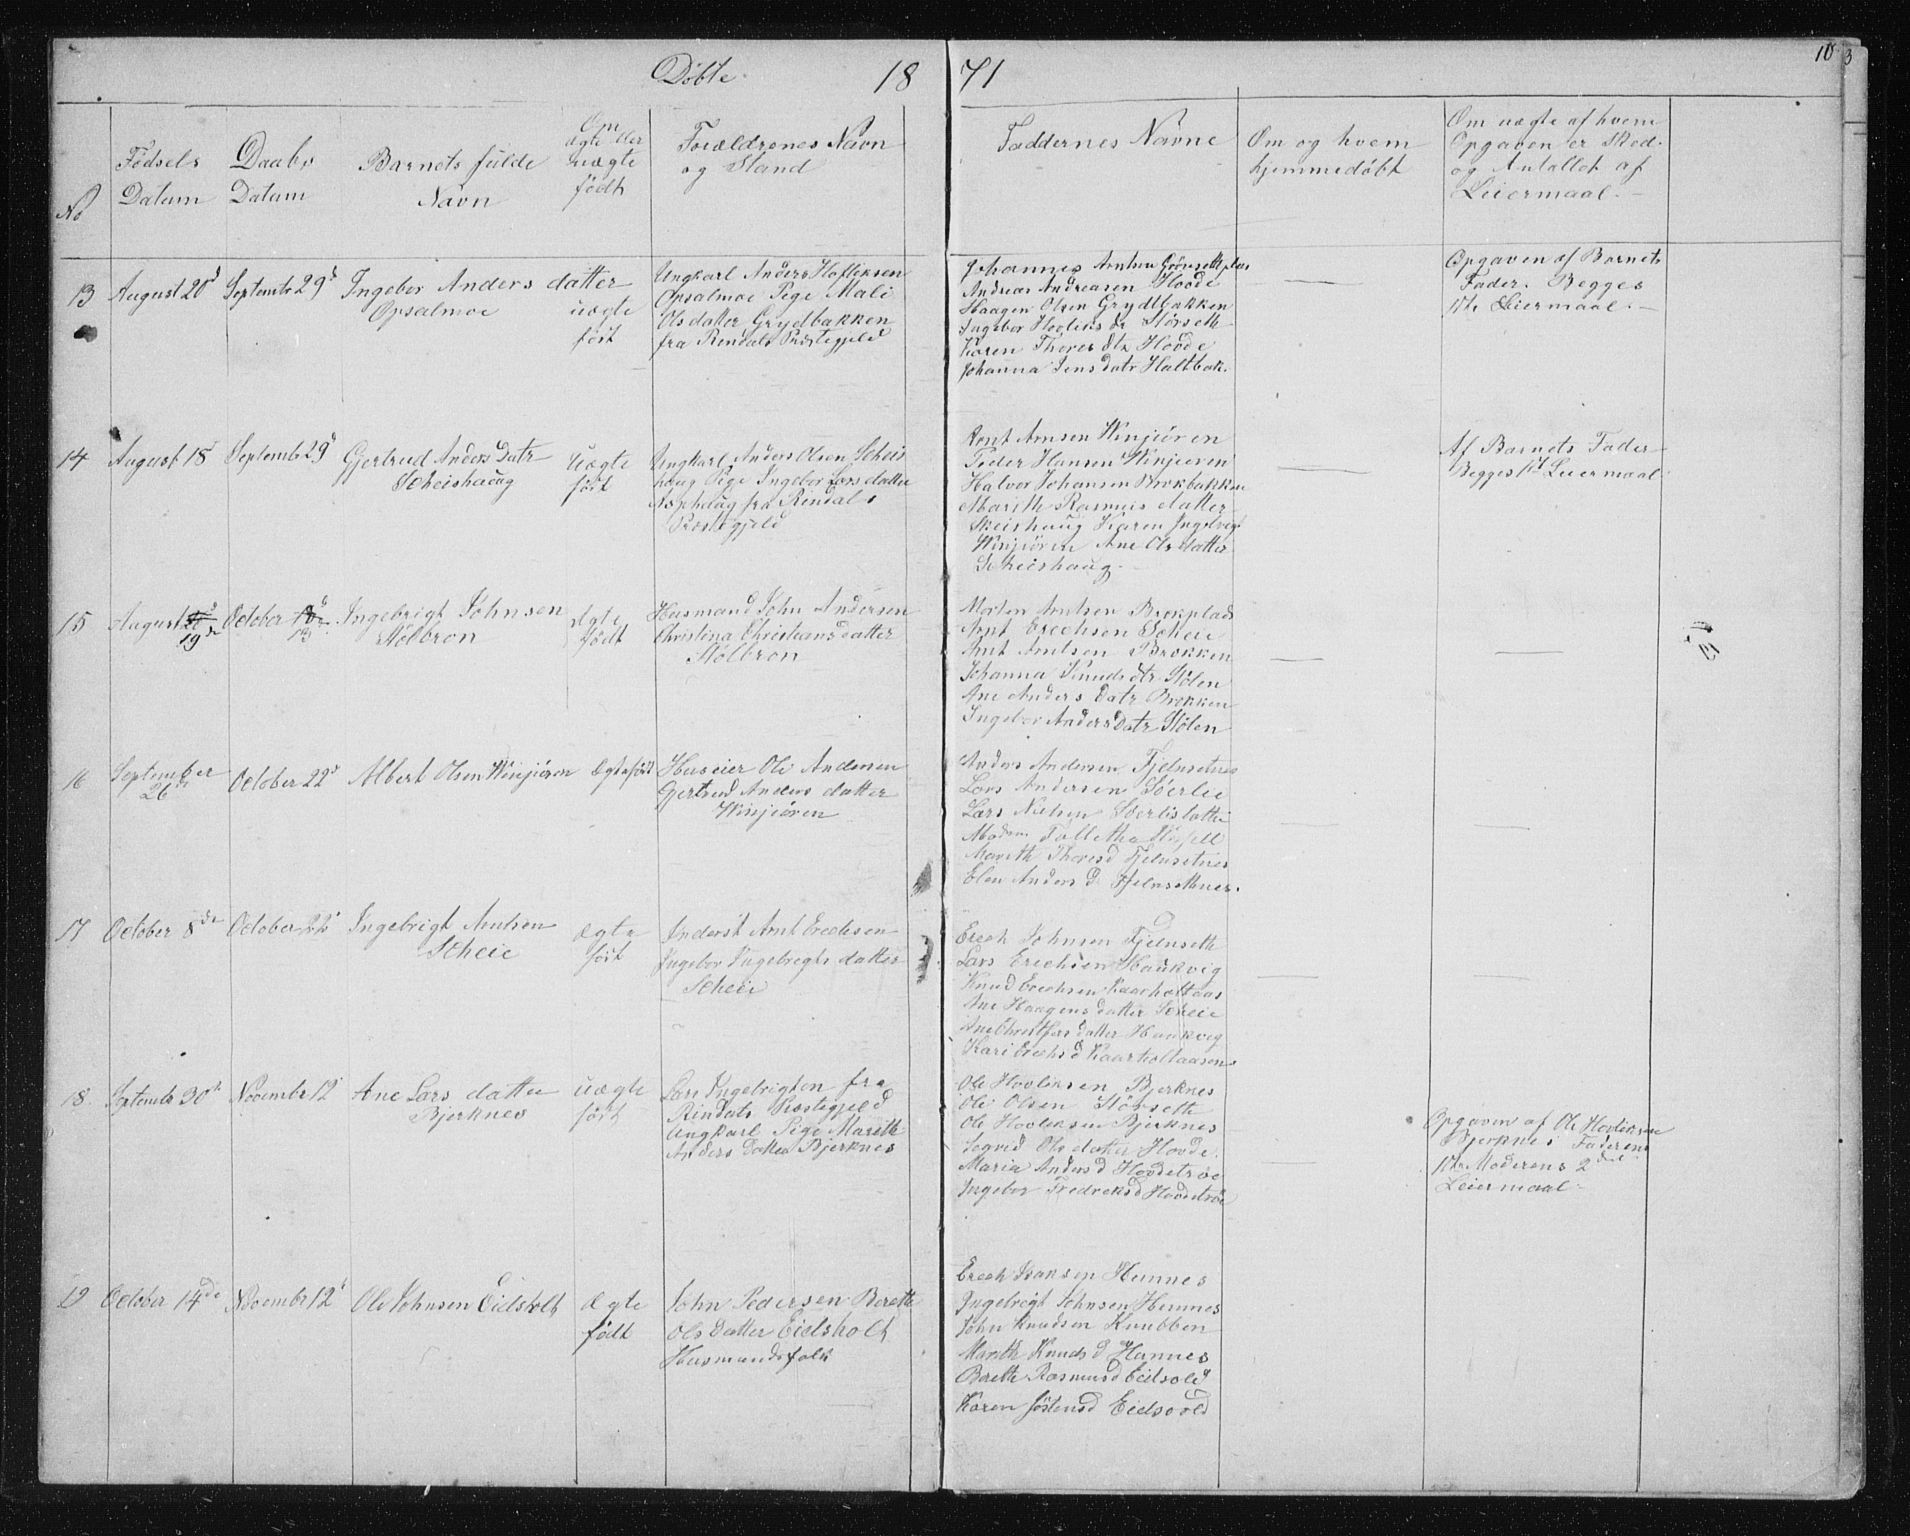 Døbte 18 71
10
No
Fødsels Datum
Daabs Datum
Barnets fulde Navn
Om ægte eller uægte født
Forældrenes Navn og Stand
Faddernes Navne
Om og hvem hjemmedøbt
Om uægte af hvem
Opgaven er Sked
og Antallet af
Leiermaal.
13
August 20d
Septembr 29d
Ingebor Anders datter
Opsalmoe
uægte
født
Ungkarl Anders
Opsalmoe Pige Mali
Olsdatter Grydbakken
fra Rendals Præstegjeld
Johannes Arntsen
Andreas Andreasen Hovde
Haagen Olsen Grydbakken
Ingebor Størseth
Karen Thores dtr Hovde
Johanna Jens datr Haltbak.
Opgaven af Barnets
Fader. Begges
1te Leiermaal.
14
August 18
Septembr 29d
Gjertrud Anders Datr
Scheishaug
Uægte
født
Ungkarl Anders Olsen Scheis
haug Pige Ingebor Lars datter
Asphaug fra Rindals
Præstegjeld
Arnt Arnsen Winjeøren
Peder Hansen Winjeøren
Halvor Johansen Brækbakken
Marith Rasmus datter
Skeishaug Karen
Winjeøren Ane Ols datter
Scheishaug
Af Barnets Fader
Begges Leiermaal
15
August 19de
October
Ingebrigt Johnsen
Stølbron
Ægte
født
Husmand John Andersen
Christina Christians datter
Stølbron
Morten Arntsen Brækplads
Arnt Erechsen Scheie
Arnt Arntsen Brækken
Johanna Knuds dtr Stølen
Ane Anders Datr Brækken
Ingebor Anders Datr Stølen
16
September
26de
October 22d
Albert Olsen Winjeøren
Ægtefødt
Huseier Ole Andersen
Gjertrud Anders datter
Winjeøren
Anders Andersen Fjelnsetnes
Lars Andersen Søerlie
Lars Nielsen
Marith Thoresd Fjelnsetnes
Elen Anders d. Fjelnsethnes.
17
October 8de
October 22d
Ingebrigt Arntsen
Scheie
Ægte
født
Inderst Arnt Erechsen
Ingebor Ingebregts datter
Scheie
Erech Johnsen Fjelnseth
Lars Erechsen Haukvig
Knud Erechsen Kaarholtaas
Ane Haagens datter Scheie
Ane Christophers datter Haukvig
Kari Erechs d Kaarholtaasen
18.
Septembr 30te
Novembr 12
Ane Lars datter
Bjerknes
uægte
født
Lars Ingebrigtsen fra
Rindals Præstegjeld
Ungkarl Pige Marith
Anders Datter Bjerknes
Ole Hovleksen Bjerknes
Ole Olsen Størseth
Ole Hovleksen Bjerknes
Segrid Ols datter Hovde
Maria Anders d Hovdetrøe
Ingebor Fredreksd Hovdetrøe
Opgaven af Ole Hovleksen
Bjerknes Faderens
1te Moderens 2det
Leiermaal
19
October 14de
Novembr 12d
Ole Johnsen Eidsholt
Ægte
født
John Pedersen Berethe
Ols Datter Eidsholt
Husmandsfolk
Erech Isaksen Hemnes
Ingebregt Johnsen Hemnes
John Knudsen Knubben
Marith Knuds d Hemnes
Berethe Rasmus d Eidsvold
Karen Jostensd Eidsvold